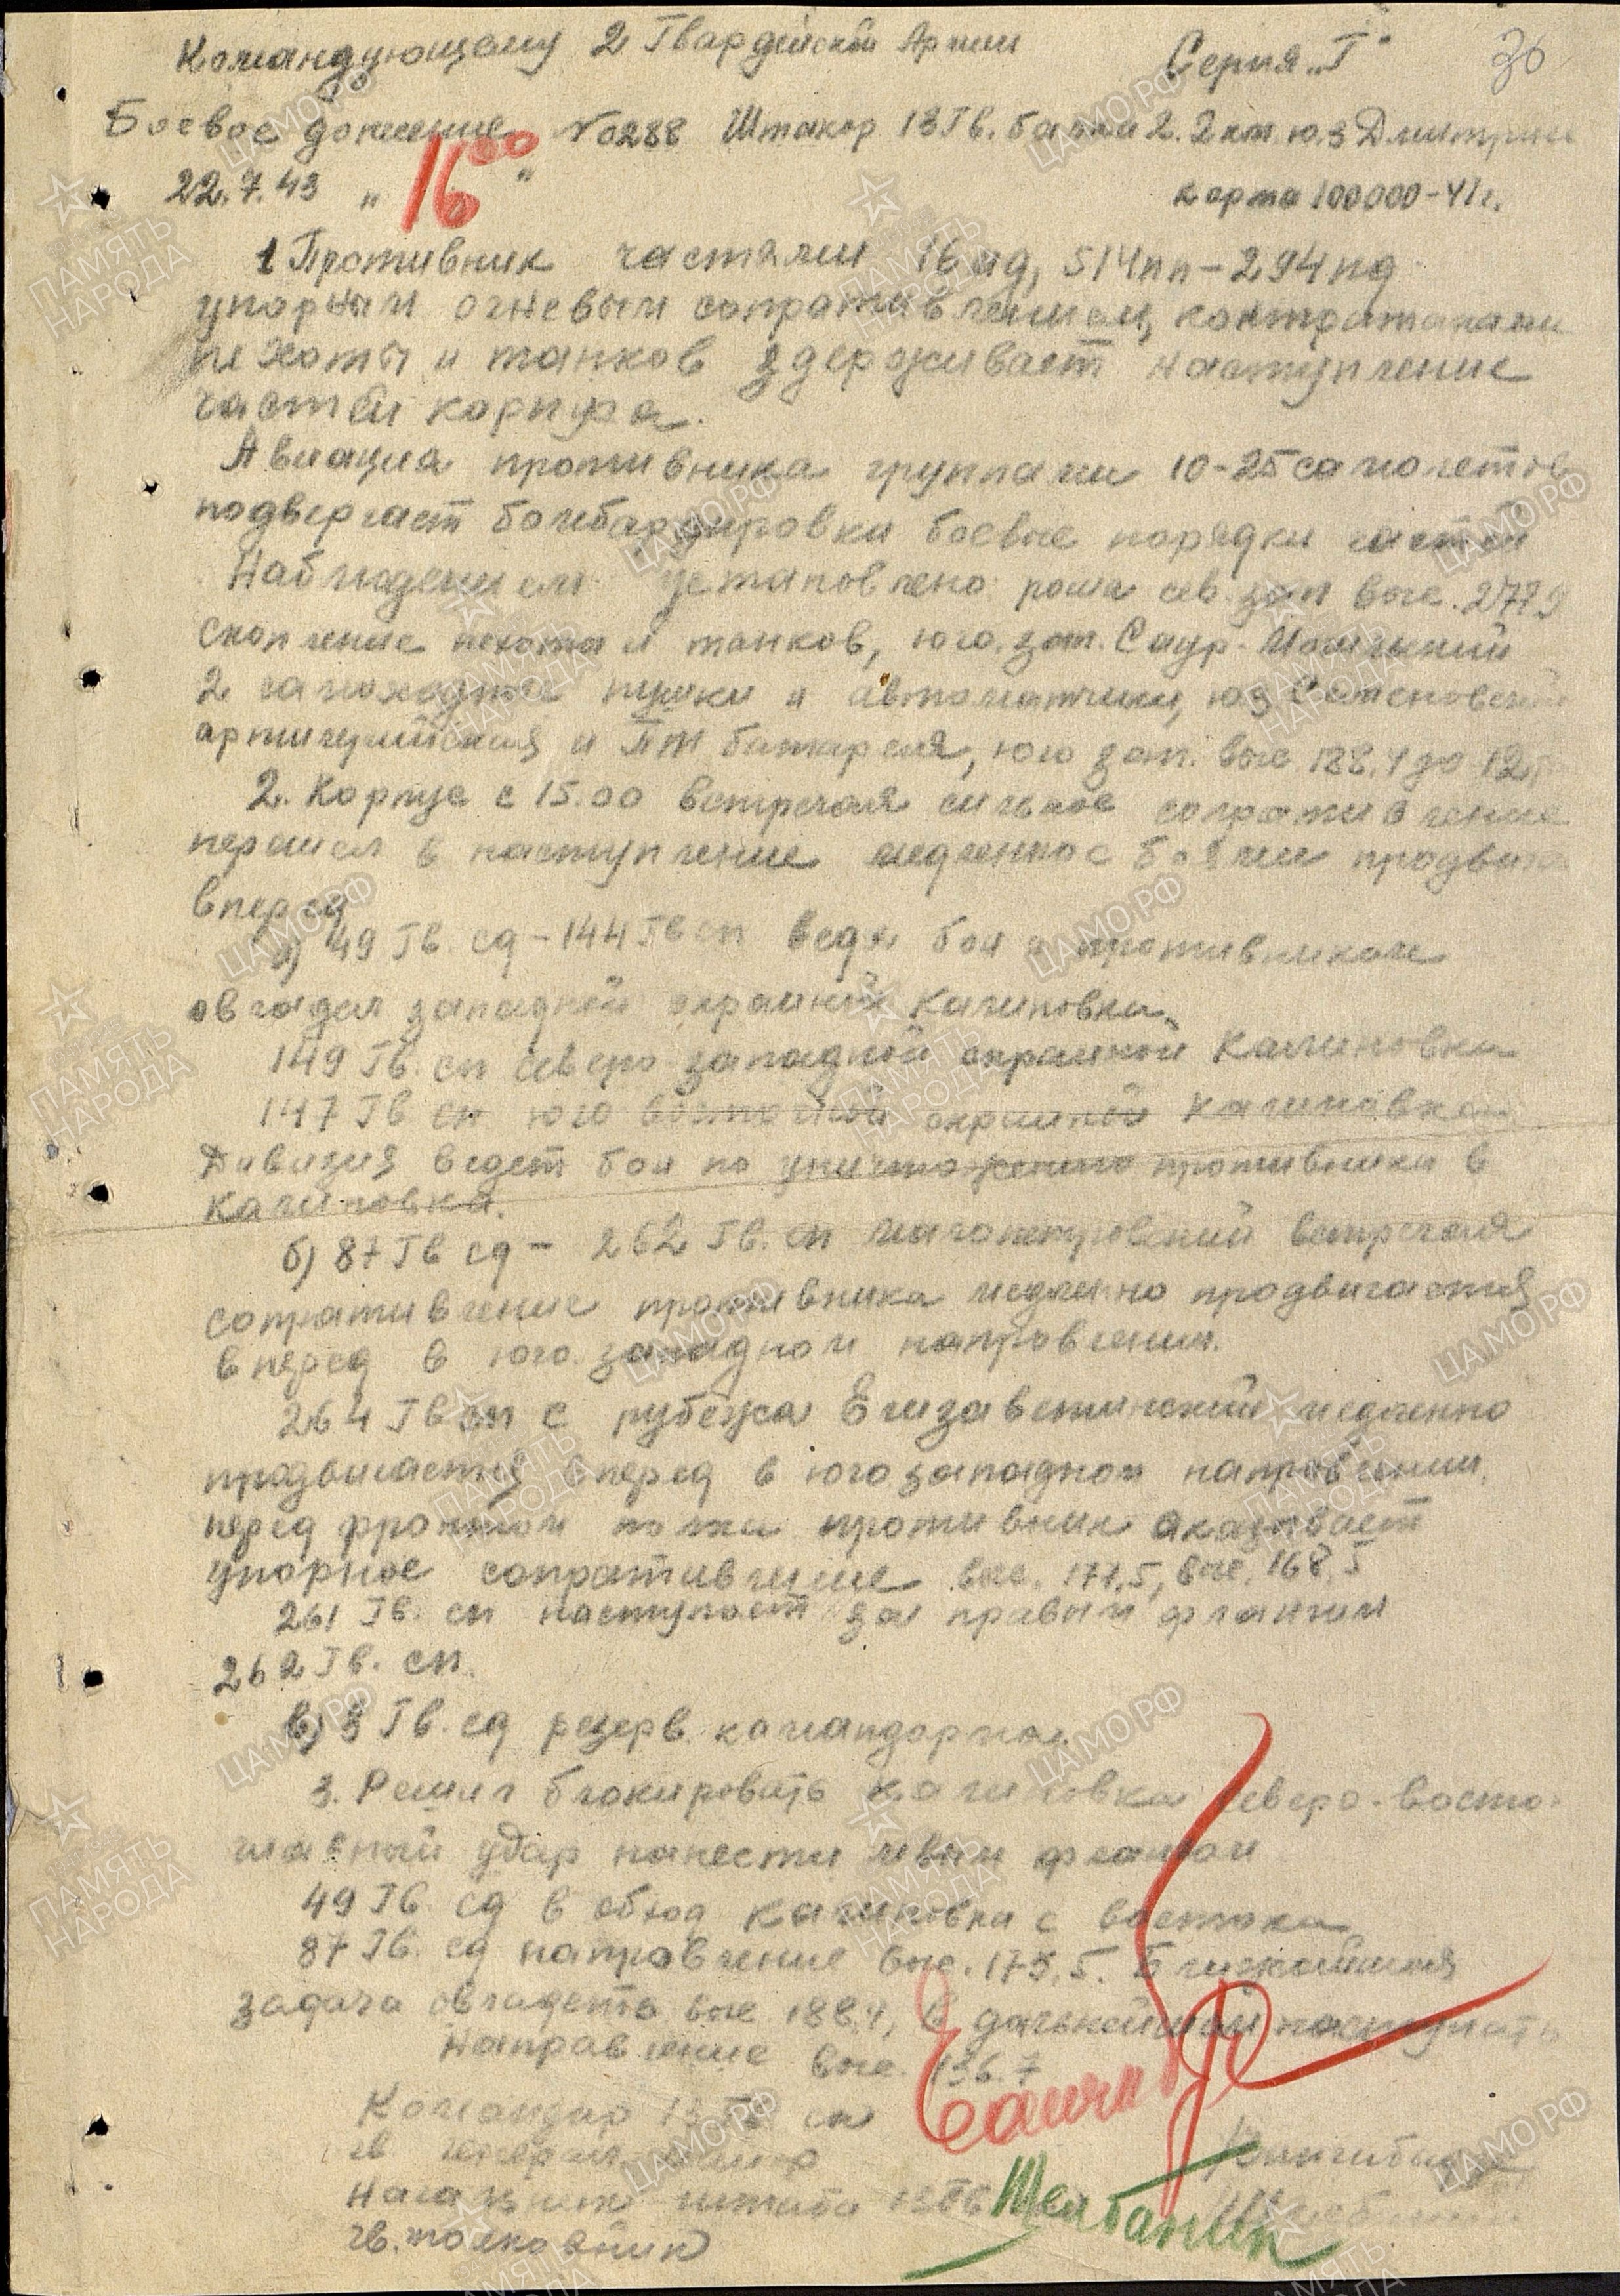 Командующему 2 Гвардейской Армии Серия "Г" 36
Боевое донесение №0288 Штакор 13 Гв. балка 2.2 км ю.з Дмитрие
22.7.43 " 16 00 " карта 100000-41г.
1 Противник частями 16 мд, 514 пп - 294 пд
упорным огневым сопративлением, контратаками
пехоты и танков здерживает наступление
частей корпуса.
Авиация противника группами 10-25 самолетов
подвергает бомбардировки боевые порядки частей
Наблюдением установлено роща сев. зап выс. 277.9
Скопление пехоты и танков, юго. зап. Саур-Могильский
2 самоходные пушки и автоматчики, юз Степановский
артилерийская и ПТ батарея, юго зап. выс 188.4 до 12
2. Корпус с 15.00 встречая сильное сопративление
перешел в наступление медленно с боями продвига
вперед
а) 49 Гв. сд - 144 Гв сп ведя бои с противником
овладел западной окраиной Калиновка
149 Гв. сп северо западной окраиной Калиновка
147 Гв сп юго восточной окраиной Калиновка
Дивизия ведет бои по уничтожению противника в
Калиновка.
б) 87 Гв сд - 262 Гв. сп встречая
сопративление противника медленно продвигается
вперед в юго. западном направлении.
264 Гв сп с рубежа Елизаветинский медленно
продвигается вперед в юго западном направлении,
перед фронтом полка противник аказывает
упорное сопративление выс. 171,5, выс. 168,5
261 Гв. сп наступает за правым флангом
262 Гв. сп.
в) 3 Гв. сд резерв командарма.
3. Решил блокировать Калиновка северо-восто
главный удар нанести левым флангом
49 Гв. сд в обход Калиновка с востока
87 Гв. сд направление выс. 175,5. Ближайшая
задача овладеть выс 188.4, в дальнейшем наступать
Направление выс. 136.7
Командир 13 Гв ск
гв генерал-майор
Начальник штаба 13 Гв
гв. полковник